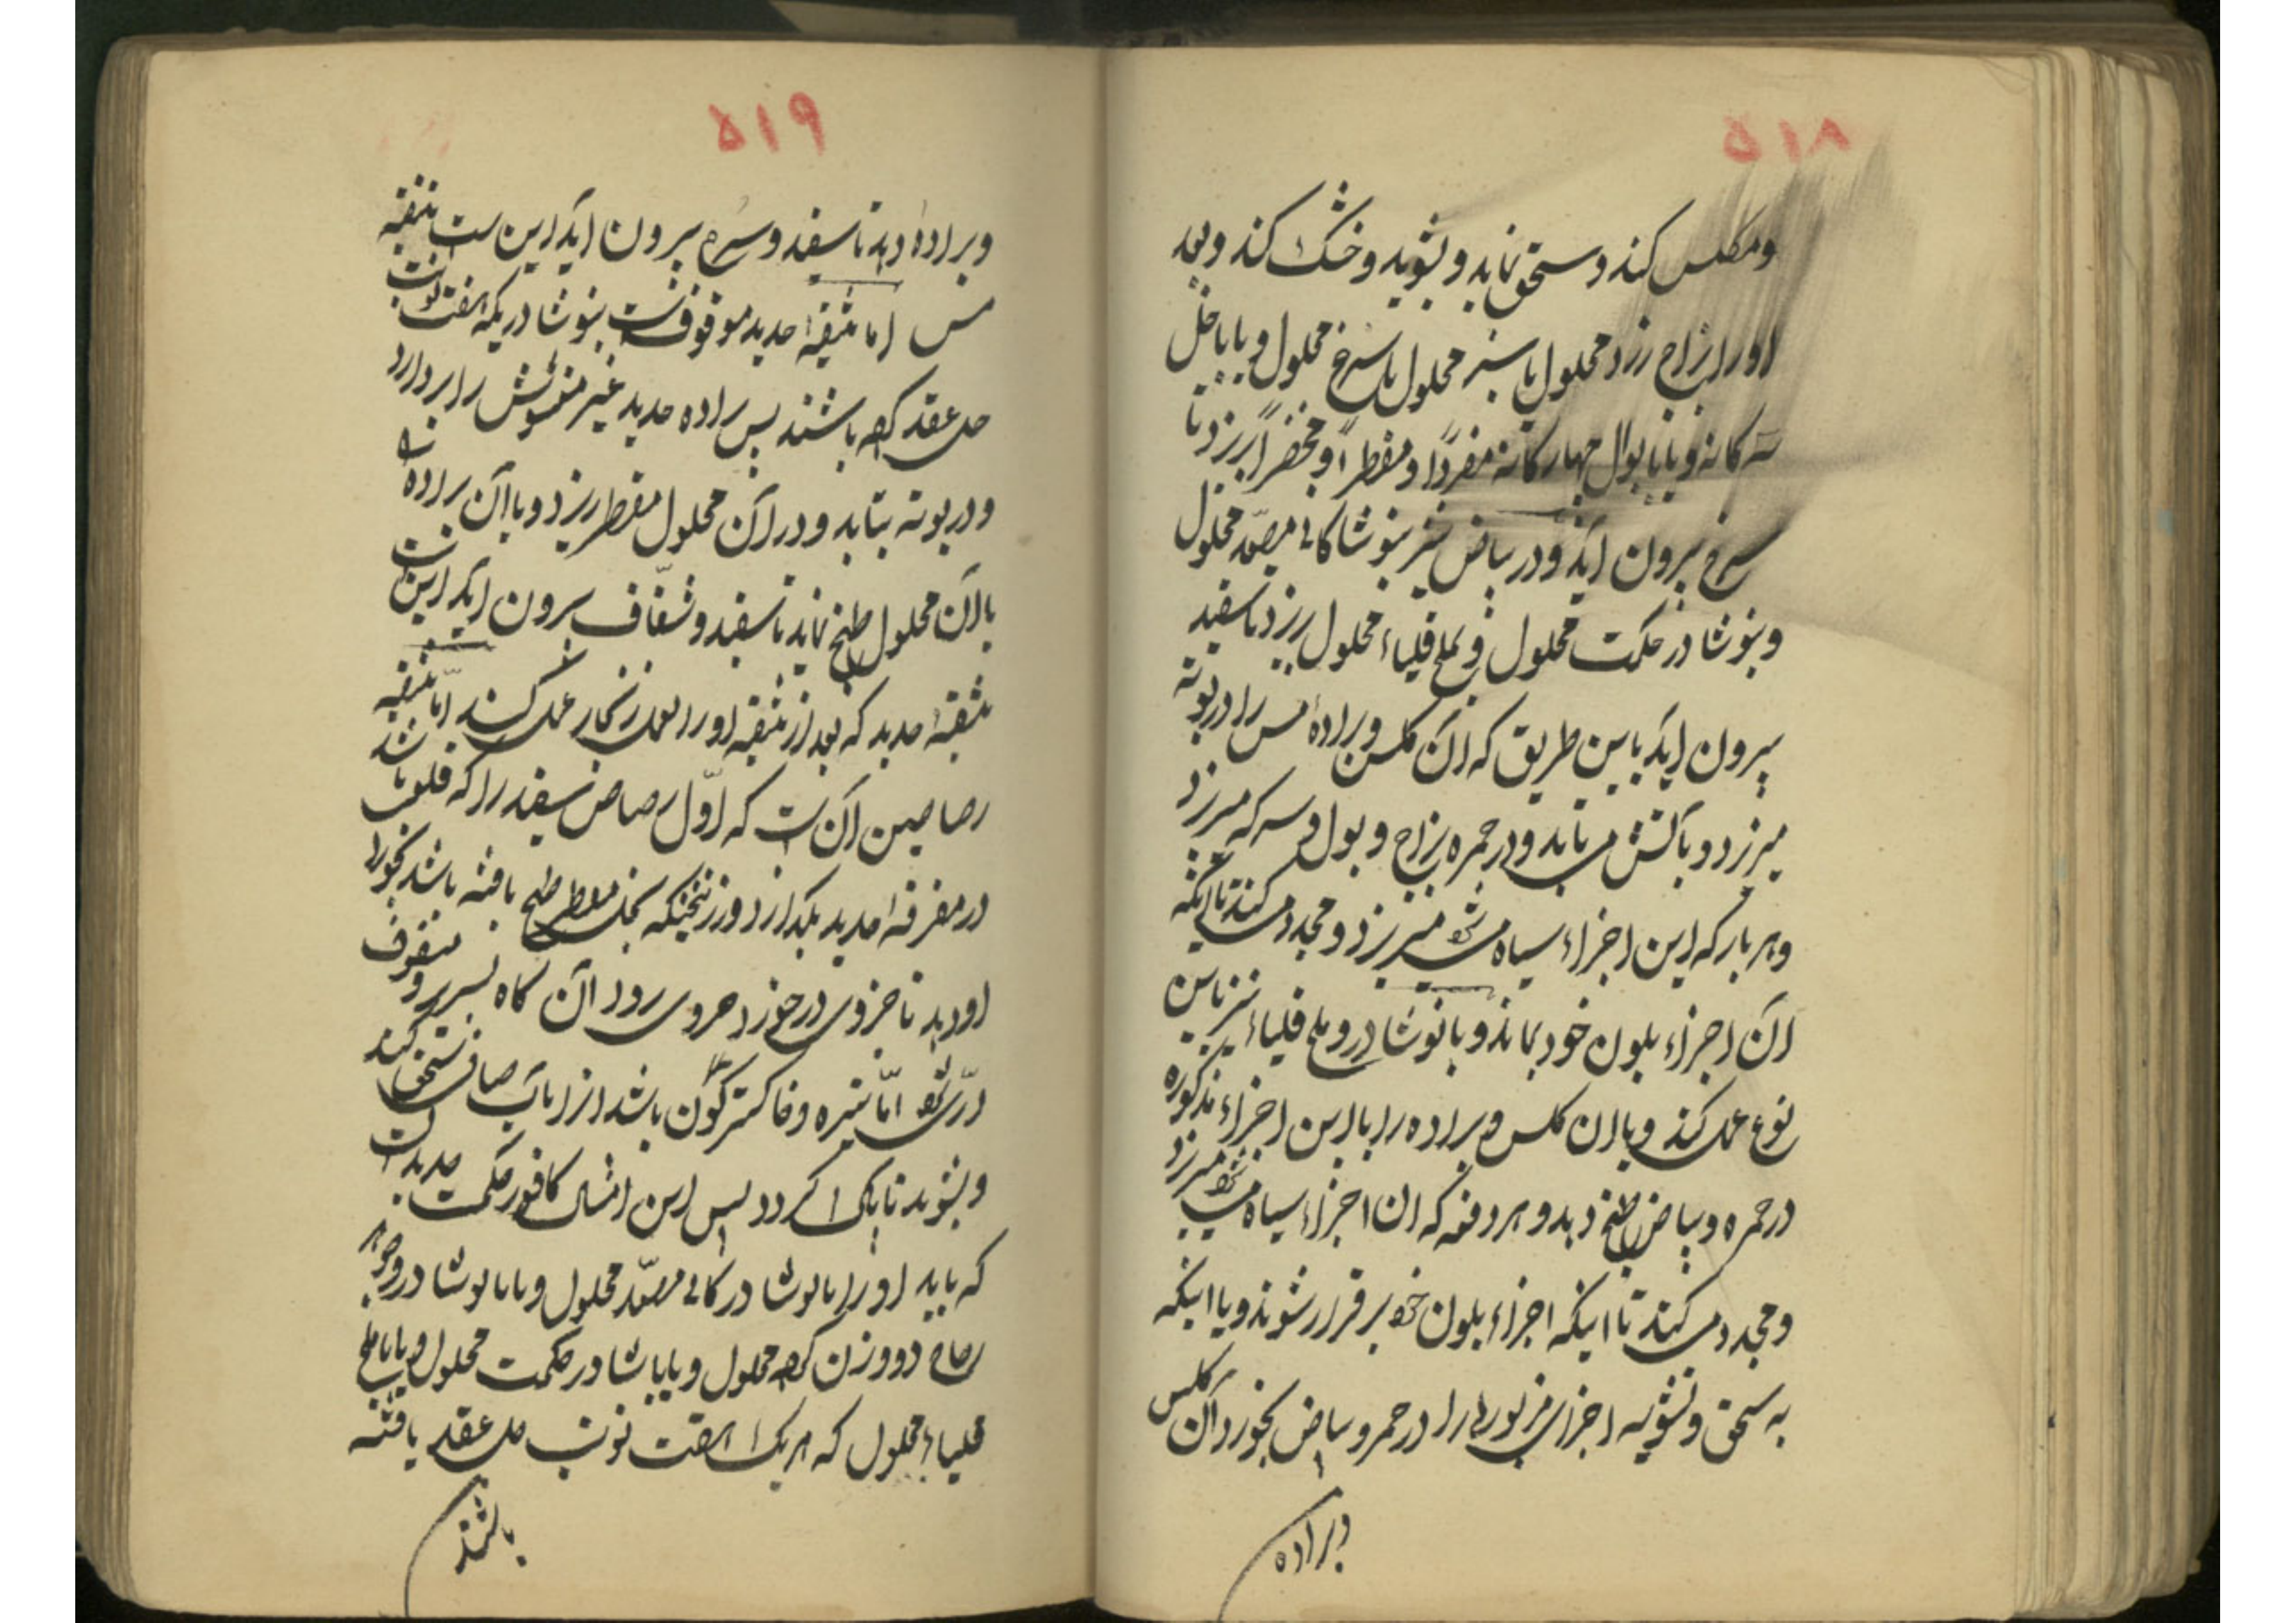 ۵۱۸
ومکلس کند و سحق نماید و بشوید و خشک کند و بعد
اورا بزاج زرد محلول یا سبز محلول یا سرخ محلول و یا باخل
سه کانه و یا بابوال چهار کانه مفردًا و مقطرًا و مخضرًا بریزد تا
سرخ بیرون اید و در بیاض نیز بنوشا کانی مصعّد محلول
و بنوشادر حکمت محلول و بملح قلیاء محلول ریزد تا سفید
بیرون اید باین طریق که آن کلس و براده مس را در بوته
میریزد و بآتش می تابد و در حمره بزاج و بول و سرکه میریزد
و هر بار که این اجزاء سیاه میشود میریزد و مجدد میکند تا اینکه
آن اجزاء بلون خود بماند و بانوشادر و ملح قلیاء نیز باین
نوع عمل کند و یا ان کلس و براده را با این اجزاء مذکوره
در حمره و بیاض طبخ دهد و هر دفعه که ان اجزاء سیاه میشود میریزد
و مجدد میکند تا اینکه اجزاء بلون خود برقرار شوند و یا اینکه
به سحق و تشویه اجزای مزبوره را در حمره و بیاض بخورد آن کلس
وبراده
۵۱۹
وبراده دهد تا سفید و سره بیرون اید این ست تنقیه
مس اما تنقیه حدید موقوفست بنوشادریکه هفت نوبت
حل عقد کرده باشند پس براده حدید غیر مغشوش را بردارد
و در بوته بتابد و در آن محلول مقطر ریزد و یا آن براده را
با آن محلول طبخ نماید تا سفید و شفّاف بیرون اید اینست
تنقیه حدید که بعد از تنقیه او را بعمل زنجار عمل کنند امّا تنقیه
رصاصین آن ست که اوّل رصاص سفید را که قلعی باشد
در مغرفه حدید بکدازد و زرنیخیکه بخل مقطر طبخ یافته باشد بخورد
او دهد تا جزوی در خورد جزوی رود آن کاه بسریر و متفوف
درّی شود امّا تیره و خاکستر کون باشد انرا بآب صاف سحق کند
و بشوید تا پاک کردد پس این امثال کافور حکمت حدید است
که باید او را بانوشادر کانی مصعّد محلول و یا بانوشادر و جوهر
رصاص دو وزن کرده محلول و یا بانوشادر حکمت محلول و یا باملح
قلیاء محلول که هر یک هفت نوبت حل عقد یافته
باشند